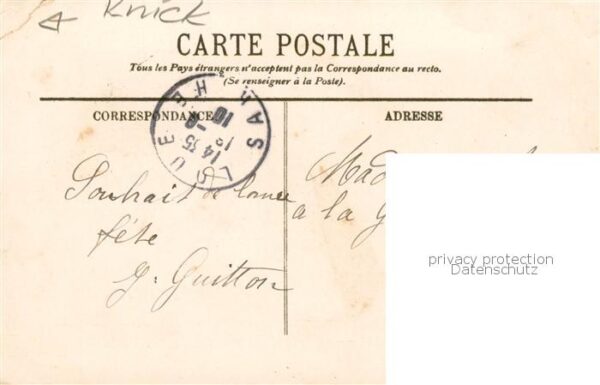 Knick
CARTE POSTALE
Tous les Pays étrangers n'acceptent pas la Correspondance au recto.
(Se renseigner à la Poste).
CORRESPONDANCE
ADRESSE
14 35
Souhait de bonne
fête
J. Guitton
Mad
à la G
privacy protection
Datenschutz